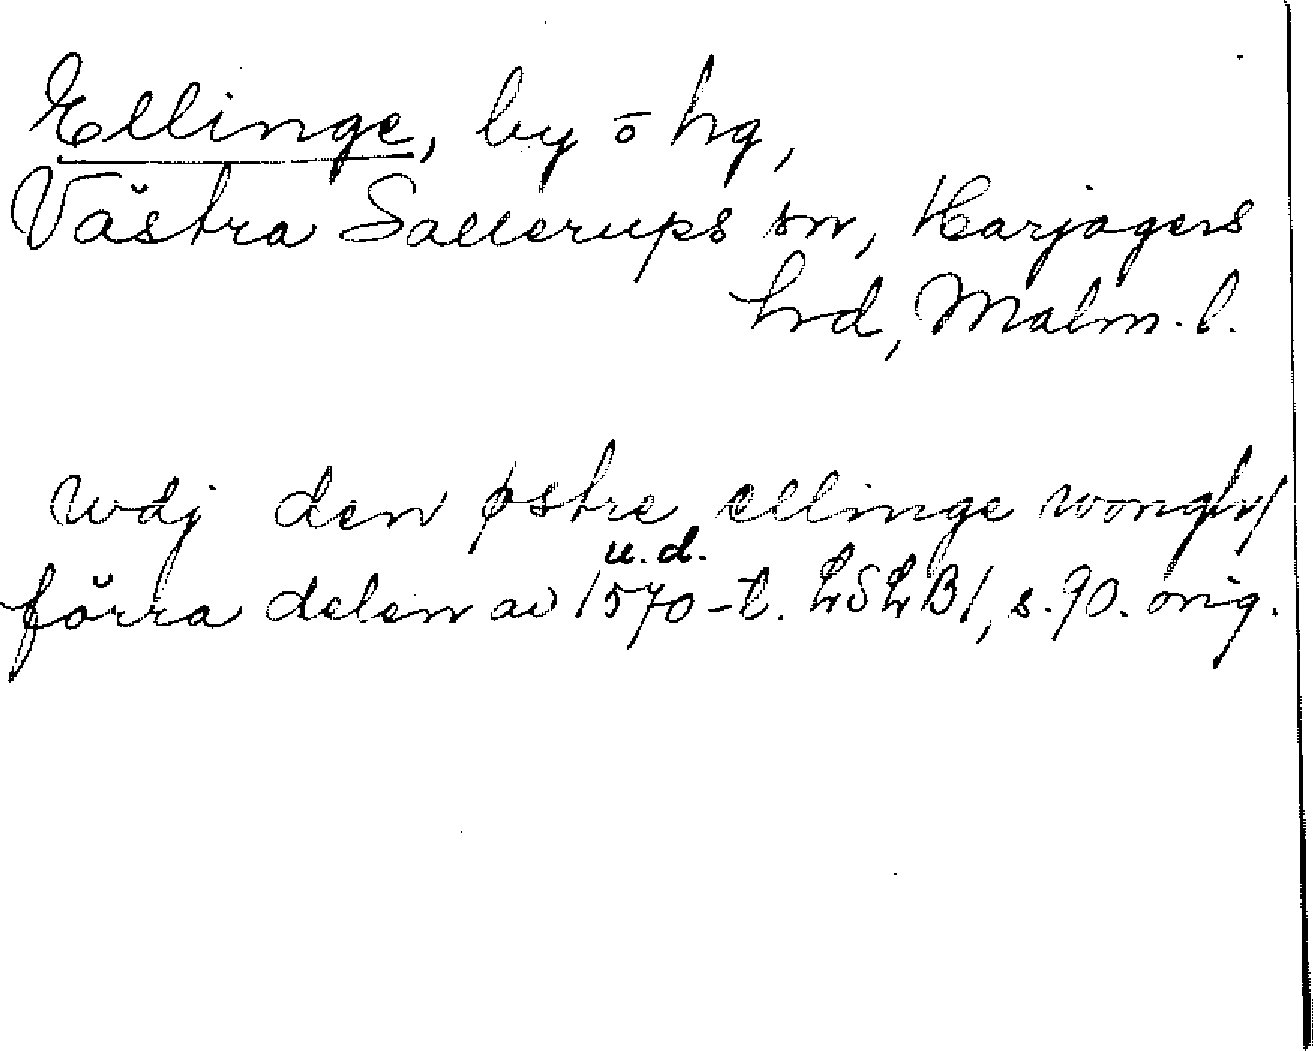 Ellinge, by o hg,
Västra Sallerups sn, Harjagers
hrd, Malm. l.
wdj den østre ellinge wongh
u.d.
förra delen av 1570-t. LSLB1, s. 90. orig.